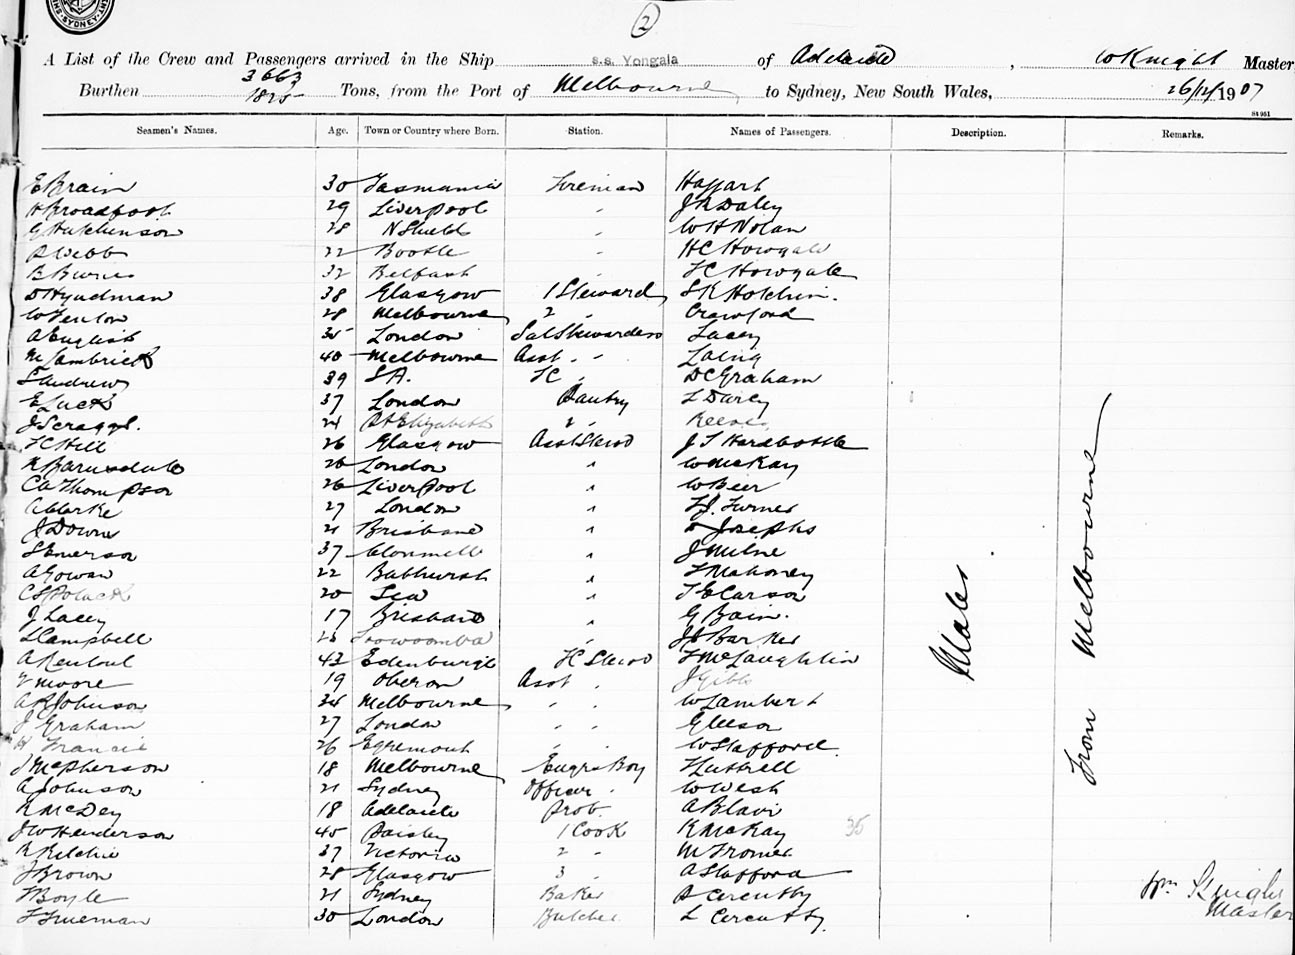 SYDNEY
2
A List of the Crew and Passengers arrived in the Ship s.s. Yongala of Adelaide, W Knight Master,
3663
Burthen 1825 Tons, from the Port of Melbourne, to Sydney, New South Wales, 26/12/1907
St 951
Seamen's Names. Age. Town or Country where Born. Station. Names of Passengers. Description. Remarks.
E Brain 30 Tasmania Fireman Haggart
H Broadfoot 29 Liverpool " J R Daley
G Hutchinson 28 N Shields " W H Nolan
Webb 22 Bootle " H C Howgale
B Burns 32 Belfast " F C Howgale
D Hyndman 38 Glasgow 1 Steward S R Hotchin.
W Fenton 28 Melbourne 2 " Crawford
A English 35 London Sal Stewardess Lacey
M Lambrick 40 Melbourne Asst " " Laing
S Andrews 39 S A. FC " D C Graham
E Luck 37 London Pantry L Darcy
J Scraggs. 24 Pt Elizabeth 2 " Reeves
F C Hill 26 Glasgow Asst Stewd J T Hardbottle
R Barnsdale 26 London " W McKay
C A Thompson 26 Liverpool " W Beer
A Clarke 27 London " F J. Turner
J Downs 21 Brisbane " Josephs
S Emerson 37 Clonmell " J Milne
A Gowan 22 Bathurst " F Mahoney
C S Polack 20 Sea " T E Carson
J Lacey 17 Brisbane " G Bain.
L Campbell 26 Toowoomba " J Barker
A Renloul 43 Edenburgh FC Stewd F McLaughlin
Moore 19 Oberon Asst " J Gibbs
A Johnson 34 Melbourne " " W Lambert
J Graham 27 London " " Gleeson
H Francis 26 Egremont " " W Stafford.
J McPherson 18 Melbourne Engrs Boy F Luttrell
A Johnson 21 Sydney Officer " W West
R McDey 18 Adelaide Prob. A Blair
J W Henderson 40 Paisley 1 Cook R McKay 35
R Ritchie 37 Victoria 2 " M Fromer
J Brown 28 Glasgow 3 " A Stafford
F Boyle 21 Sydney Baker Cercutty
F Trueman 30 London Butcher L Cercutty
Males
From Melbourne
Wm Knight
Master